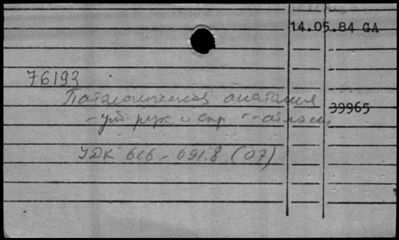 14.05.84 GA
76193
Патологическая анатомия
39965
- рук. и спр. - атласы
УДК 616-091.8 (07)